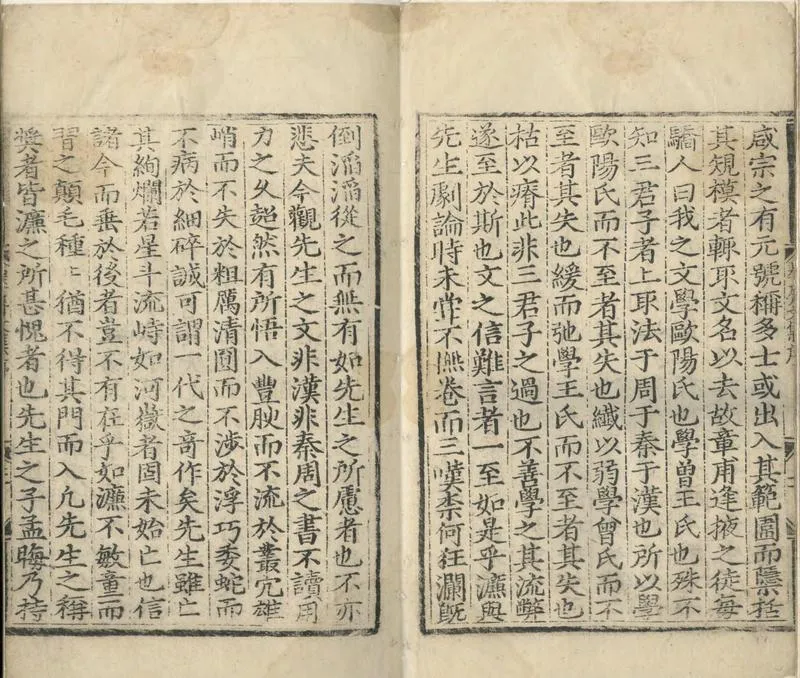 咸宗之有元號稱多士或出入其範圍而檃括
其規模者輒取文名以去故章甫逢掖之徒每
驕人曰我之文學歐陽氏也學曾王氏也殊不
知三君子者上取法于周于秦于漢也所以學
歐陽氏而不至者其失也纖以弱學曾氏而不
至者其失也緩而弛學王氏而不至者其失也
枯以瘠此非三君子之過也不善學之其流弊
遂至於斯也文之信難言者一至如是乎濂與
先生劇論時未嘗不撫卷而三嘆柰何狂瀾旣
倒滔滔從之而無有如先生之所慮者也不亦
悲夫今觀先生之文非漢非秦周之書不讀用
力之久超然有所悟入豐腴而不流於叢冗雄
峭而不失於粗厲清圓而不涉於浮巧委蛇而
不病於細碎誠可謂一代之奇作矣先生雖亡
其絢爛若星斗流峙如河嶽者固未始亡也信
諸今而垂於後者豈不有在乎如濂不敏童而
習之顛毛種〻猶不得其門而入凡先生之稱
奬者皆濂之所甚愧者也先生之子孟晦乃持